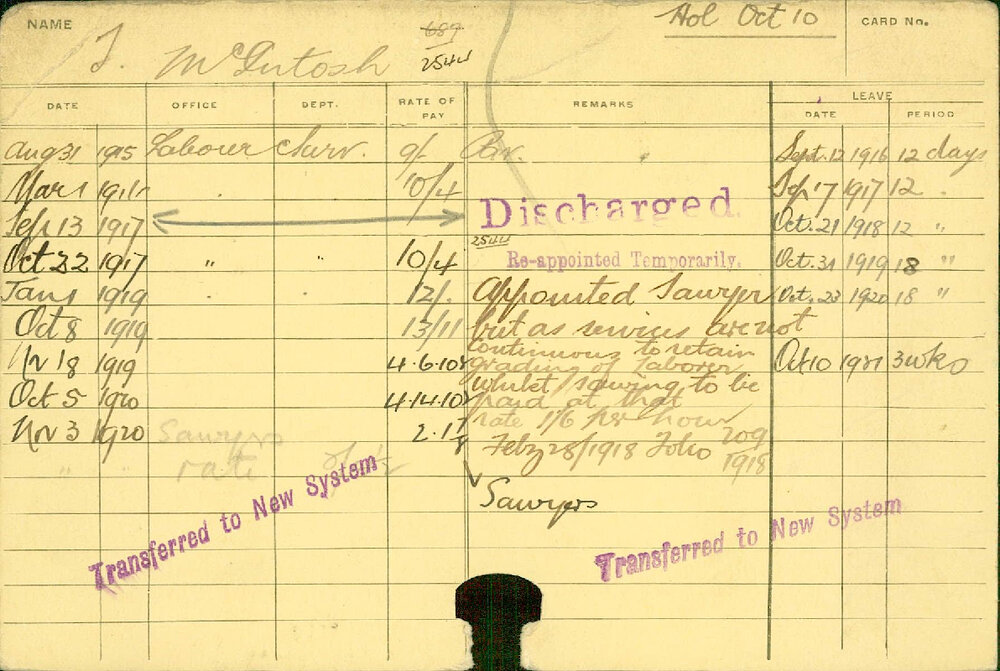 NAME T. McIntosh 689 2544 Hol Oct 10 CARD No.
DATE OFFICE DEPT. RATE OF PAY REMARKS LEAVE
DATE PERIOD
Aug 31 1915 Labour Surv. 9/- Sept. 12 1916 12 days
Mar 1 10/4 Sep 17 1917 12 "
Sep 13 1917 Discharged. Oct. 21 1918 12 "
2544
Oct 22 1917 " " 10/4 Re-appointed Temporarily. Oct. 31 1919 18 "
Jan 1 1919 12/- Appointed Sawyer Oct. 23 1920 18 "
Oct 8 1919 13/11 but as services are not
continuous to retain
Nr 18 1919 4.6.10 grading of Laborer Oct 10 1921 3 wks
whilst sawing to be
Oct 5 1920 4.14.10 paid at that
rate 1/6 per hour
Nr 3 1920 Sawyers 2.17 Feby 28/1918 Folio 209
1918
" " rate
Sawyers
Transferred to New System
Transferred to New System